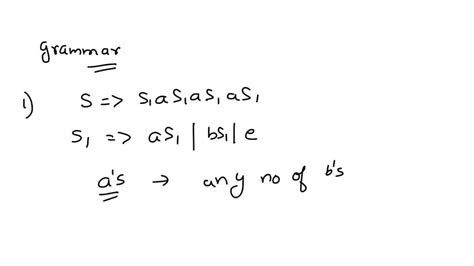 grammar
1) S => S₁aS₁aS₁aS₁
S₁ => aS₁ | bS₁ | e
a's → any no of b's